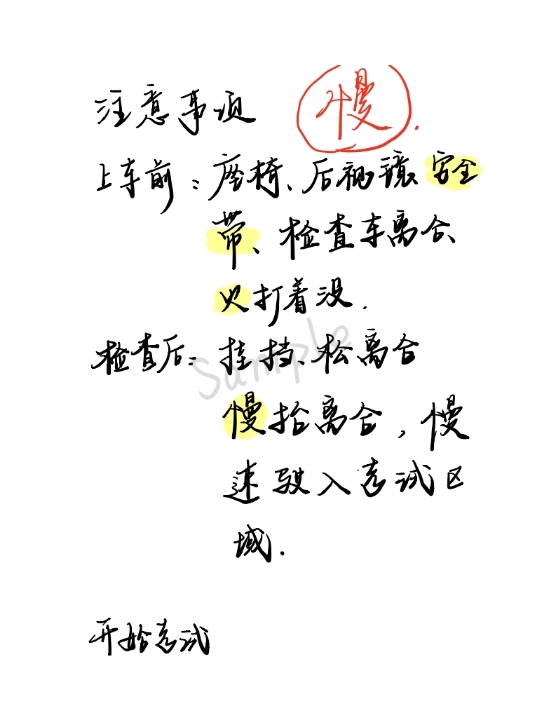 注意事项 慢
上车前：座椅、后视镜、安全
带、检查车离合
火打着没.
检查后：挂挡、松离合
Sample
慢抬离合，慢
速驶入考试区
域.
开始考试